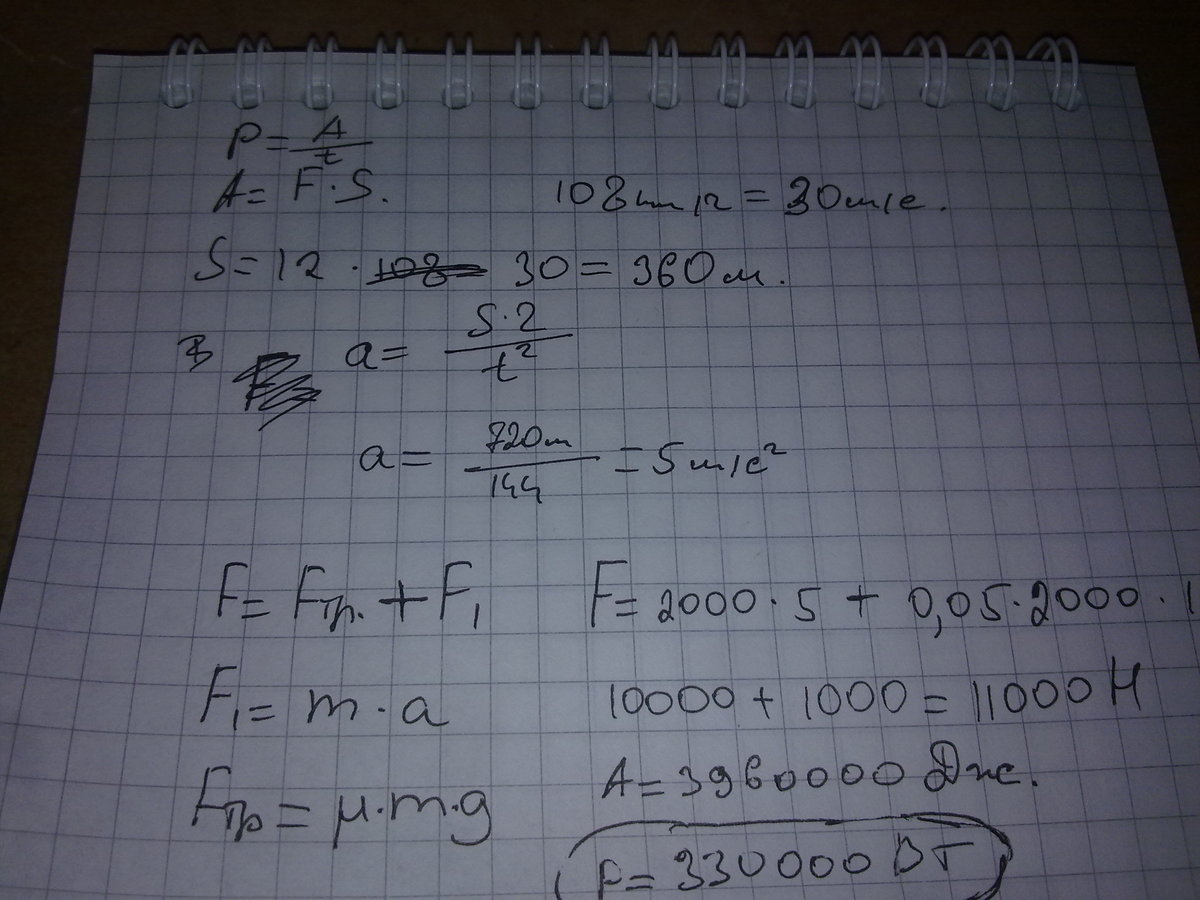 P = A/t
A = F·S.
108 km/г = 30 m/c.
S = 12 · 108 30 = 360 м.
a = S·2/t²
a = 720m/144 = 5 m/c²
F = Fтр. + F₁
F = 2000·5 + 0,05·2000·1
F₁ = m·a
10000 + 1000 = 11000 Н
Fтр = μ·m·g
A = 3960000 Дж.
P = 330000 Вт